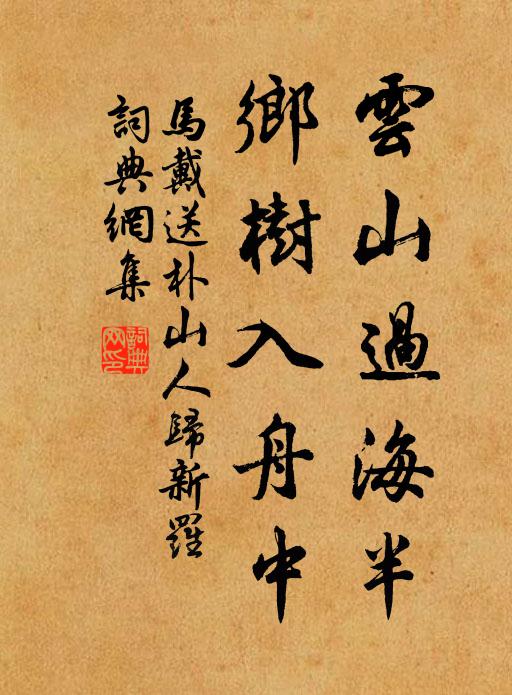 雲山過海半
鄉樹入舟中
馬戴送朴山人歸新羅
詞典網集
詞典网印